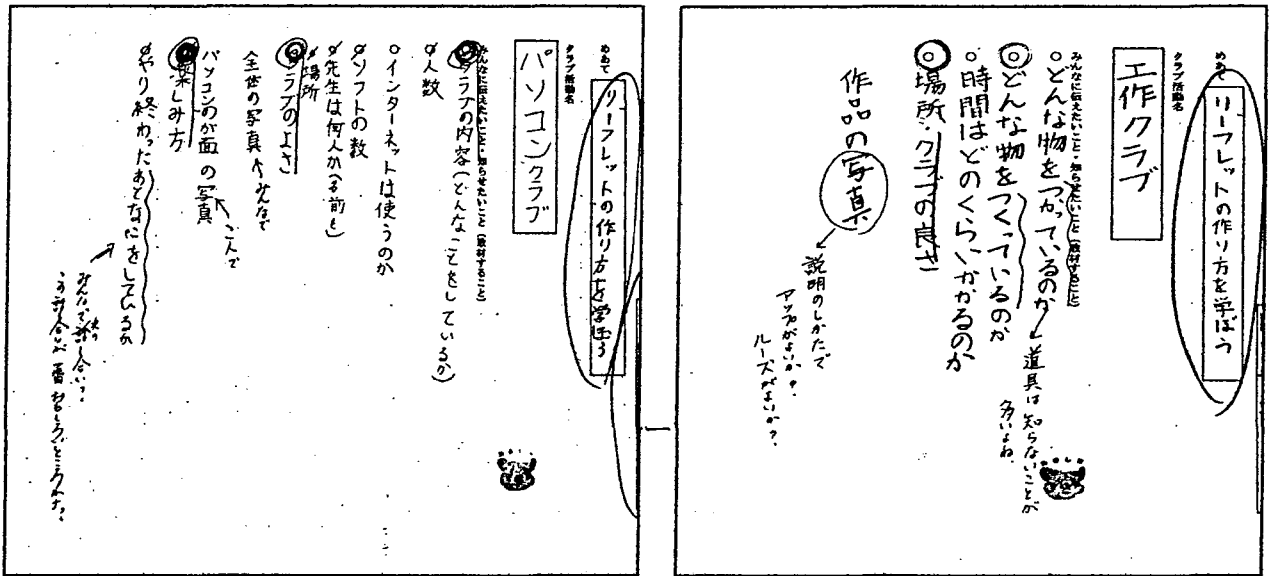 めあて
リーフレットの作り方を学ぼう
クラブ活動名
工作クラブ
みんなに伝えたいこと・知らせたいこと(取材すること)
○どんな物をつかっているのか
道具は知らないことが
多いよね。
○どんな物をつくっているのか
○時間はどのくらいかかるのか
○場所・クラブの良さ
作品の写真
説明のしかたで
アップがよいか?
ルーズがよいか?
めあて
リーフレットの作り方を学ぼう
クラブ活動名
パソコンクラブ
みんなに伝えたいこと・知らせたいこと(取材すること)
クラブの内容(どんなことをしているか)
○人数
○インターネットは使うのか
○ソフトの数
○先生は何人か(名前も)
○場所
クラブのよさ
全体の写真
みんなで
パソコンのが面の写真
こんで
楽しみ方
○やり終わったあとなにをしているか
みんなで